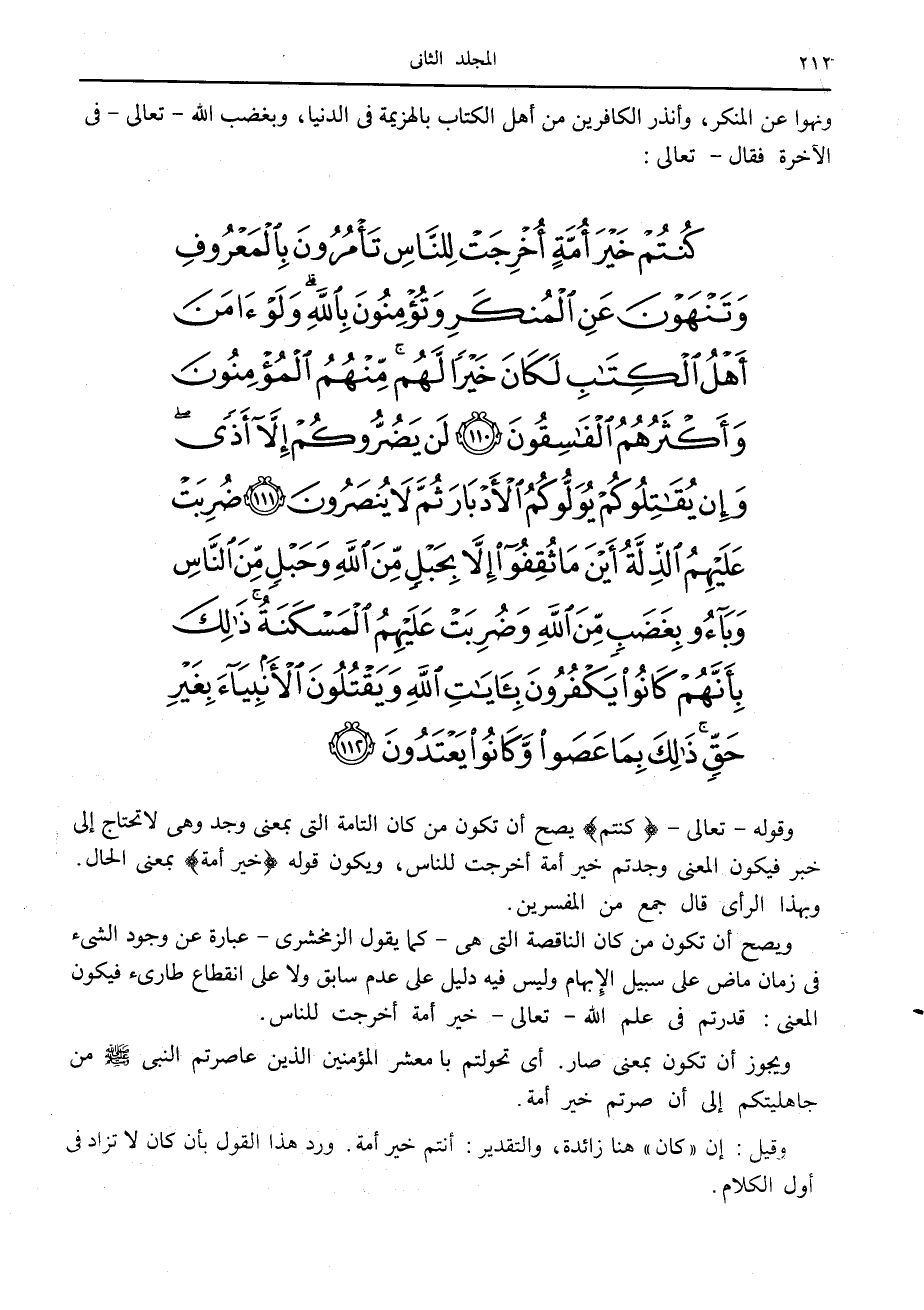 ٢١٢ المجلد الثانى
ونهوا عن المنكر، وأنذر الكافرين من أهل الكتاب بالهزيمة فى الدنيا، وبغضب الله – تعالى – فى
الآخرة فقال – تعالى :
كُنتُمْ خَيْرَ أُمَّةٍ أُخْرِجَتْ لِلنَّاسِ تَأْمُرُونَ بِٱلْمَعْرُوفِ
وَتَنْهَوْنَ عَنِ ٱلْمُنكَرِ وَتُؤْمِنُونَ بِٱللَّهِ ۗ وَلَوْ ءَامَنَ
أَهْلُ ٱلْكِتَٰبِ لَكَانَ خَيْرًا لَّهُم ۚ مِّنْهُمُ ٱلْمُؤْمِنُونَ
وَأَكْثَرُهُمُ ٱلْفَٰسِقُونَ ١١٠ لَن يَضُرُّوكُمْ إِلَّآ أَذًى ۖ
وَإِن يُقَٰتِلُوكُمْ يُوَلُّوكُمُ ٱلْأَدْبَارَ ثُمَّ لَا يُنصَرُونَ ١١١ ضُرِبَتْ
عَلَيْهِمُ ٱلذِّلَّةُ أَيْنَ مَا ثُقِفُوٓا۟ إِلَّا بِحَبْلٍ مِّنَ ٱللَّهِ وَحَبْلٍ مِّنَ ٱلنَّاسِ
وَبَآءُو بِغَضَبٍ مِّنَ ٱللَّهِ وَضُرِبَتْ عَلَيْهِمُ ٱلْمَسْكَنَةُ ۚ ذَٰلِكَ
بِأَنَّهُمْ كَانُوا۟ يَكْفُرُونَ بِـَٔايَٰتِ ٱللَّهِ وَيَقْتُلُونَ ٱلْأَنۢبِيَآءَ بِغَيْرِ
حَقٍّ ۚ ذَٰلِكَ بِمَا عَصَوا۟ وَّكَانُوا۟ يَعْتَدُونَ ١١٢
وقوله – تعالى – ﴿ كنتم﴾ يصح أن تكون من كان التامة التى بمعنى وجد وهى لا تحتاج إلى
خبر فيكون المعنى وجدتم خير أمة أخرجت للناس، ويكون قوله ﴿خير أمة﴾ بمعنى الحال.
وبهذا الرأى قال جمع من المفسرين.
ويصح أن تكون من كان الناقصة التى هى – كما يقول الزمخشرى – عبارة عن وجود الشىء
فى زمان ماض على سبيل الإبهام وليس فيه دليل على عدم سابق ولا على انقطاع طارىء فيكون
المعنى : قدرتم فى علم الله – تعالى – خير أمة أخرجت للناس.
ويجوز أن تكون بمعنى صار. أى تحولتم يا معشر المؤمنين الذين عاصرتم النبى ﷺ من
جاهليتكم إلى أن صرتم خير أمة.
وقيل : إن «كان» هنا زائدة، والتقدير : أنتم خير أمة. ورد هذا القول بأن كان لا تزاد فى
أول الكلام.